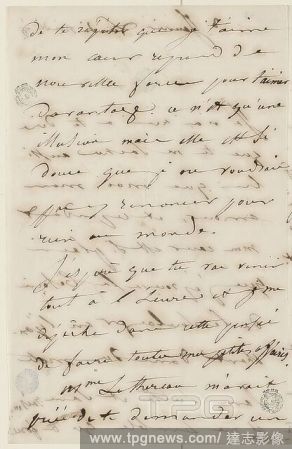 de te répéter que je t'aime
mon cœur reprend de
nouvelles forces pour t'aimer
davantage. ce n'est qu'une
illusion mais elle est si
douce que je ne voudrais
pas y renoncer pour
rien au monde.
J'espère que tu vas venir
tout à l'heure et je me
dans cette
de faire toutes mes petites affaires
Mme m'avait
priée de te demander une
TPG
www.tpgnews.com / 達志影像